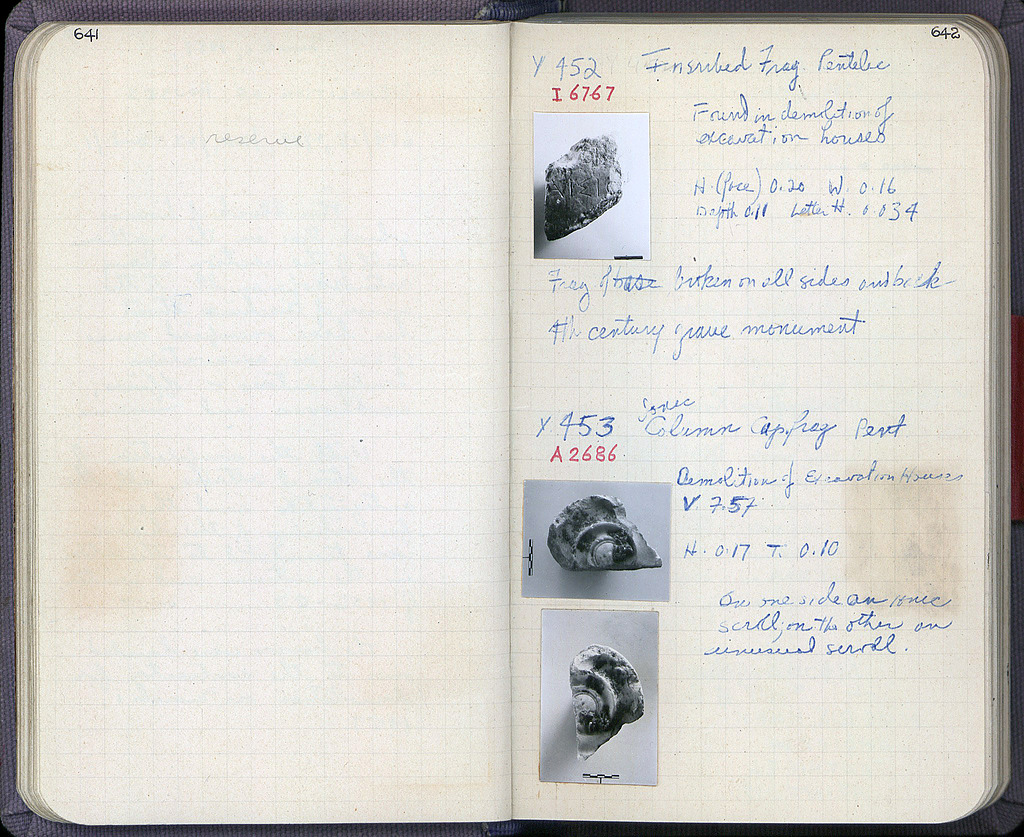 641
reserve
642
Y 452 Inscribed Frag. Pentelic
I 6767
Found in demolition of
excavation houses
H. (face) 0.20 W. 0.16
Depth 0.11 Letter H. 0.034
Frag of base broken on all sides and back
4th century grave monument
Ionic
Y 453 Column Cap. frag Pent
A 2686
Demolition of Excavation Houses
V 7.57
H. 0.17 T. 0.10
On one side an ionic
scroll; on the other an
unusual scroll.